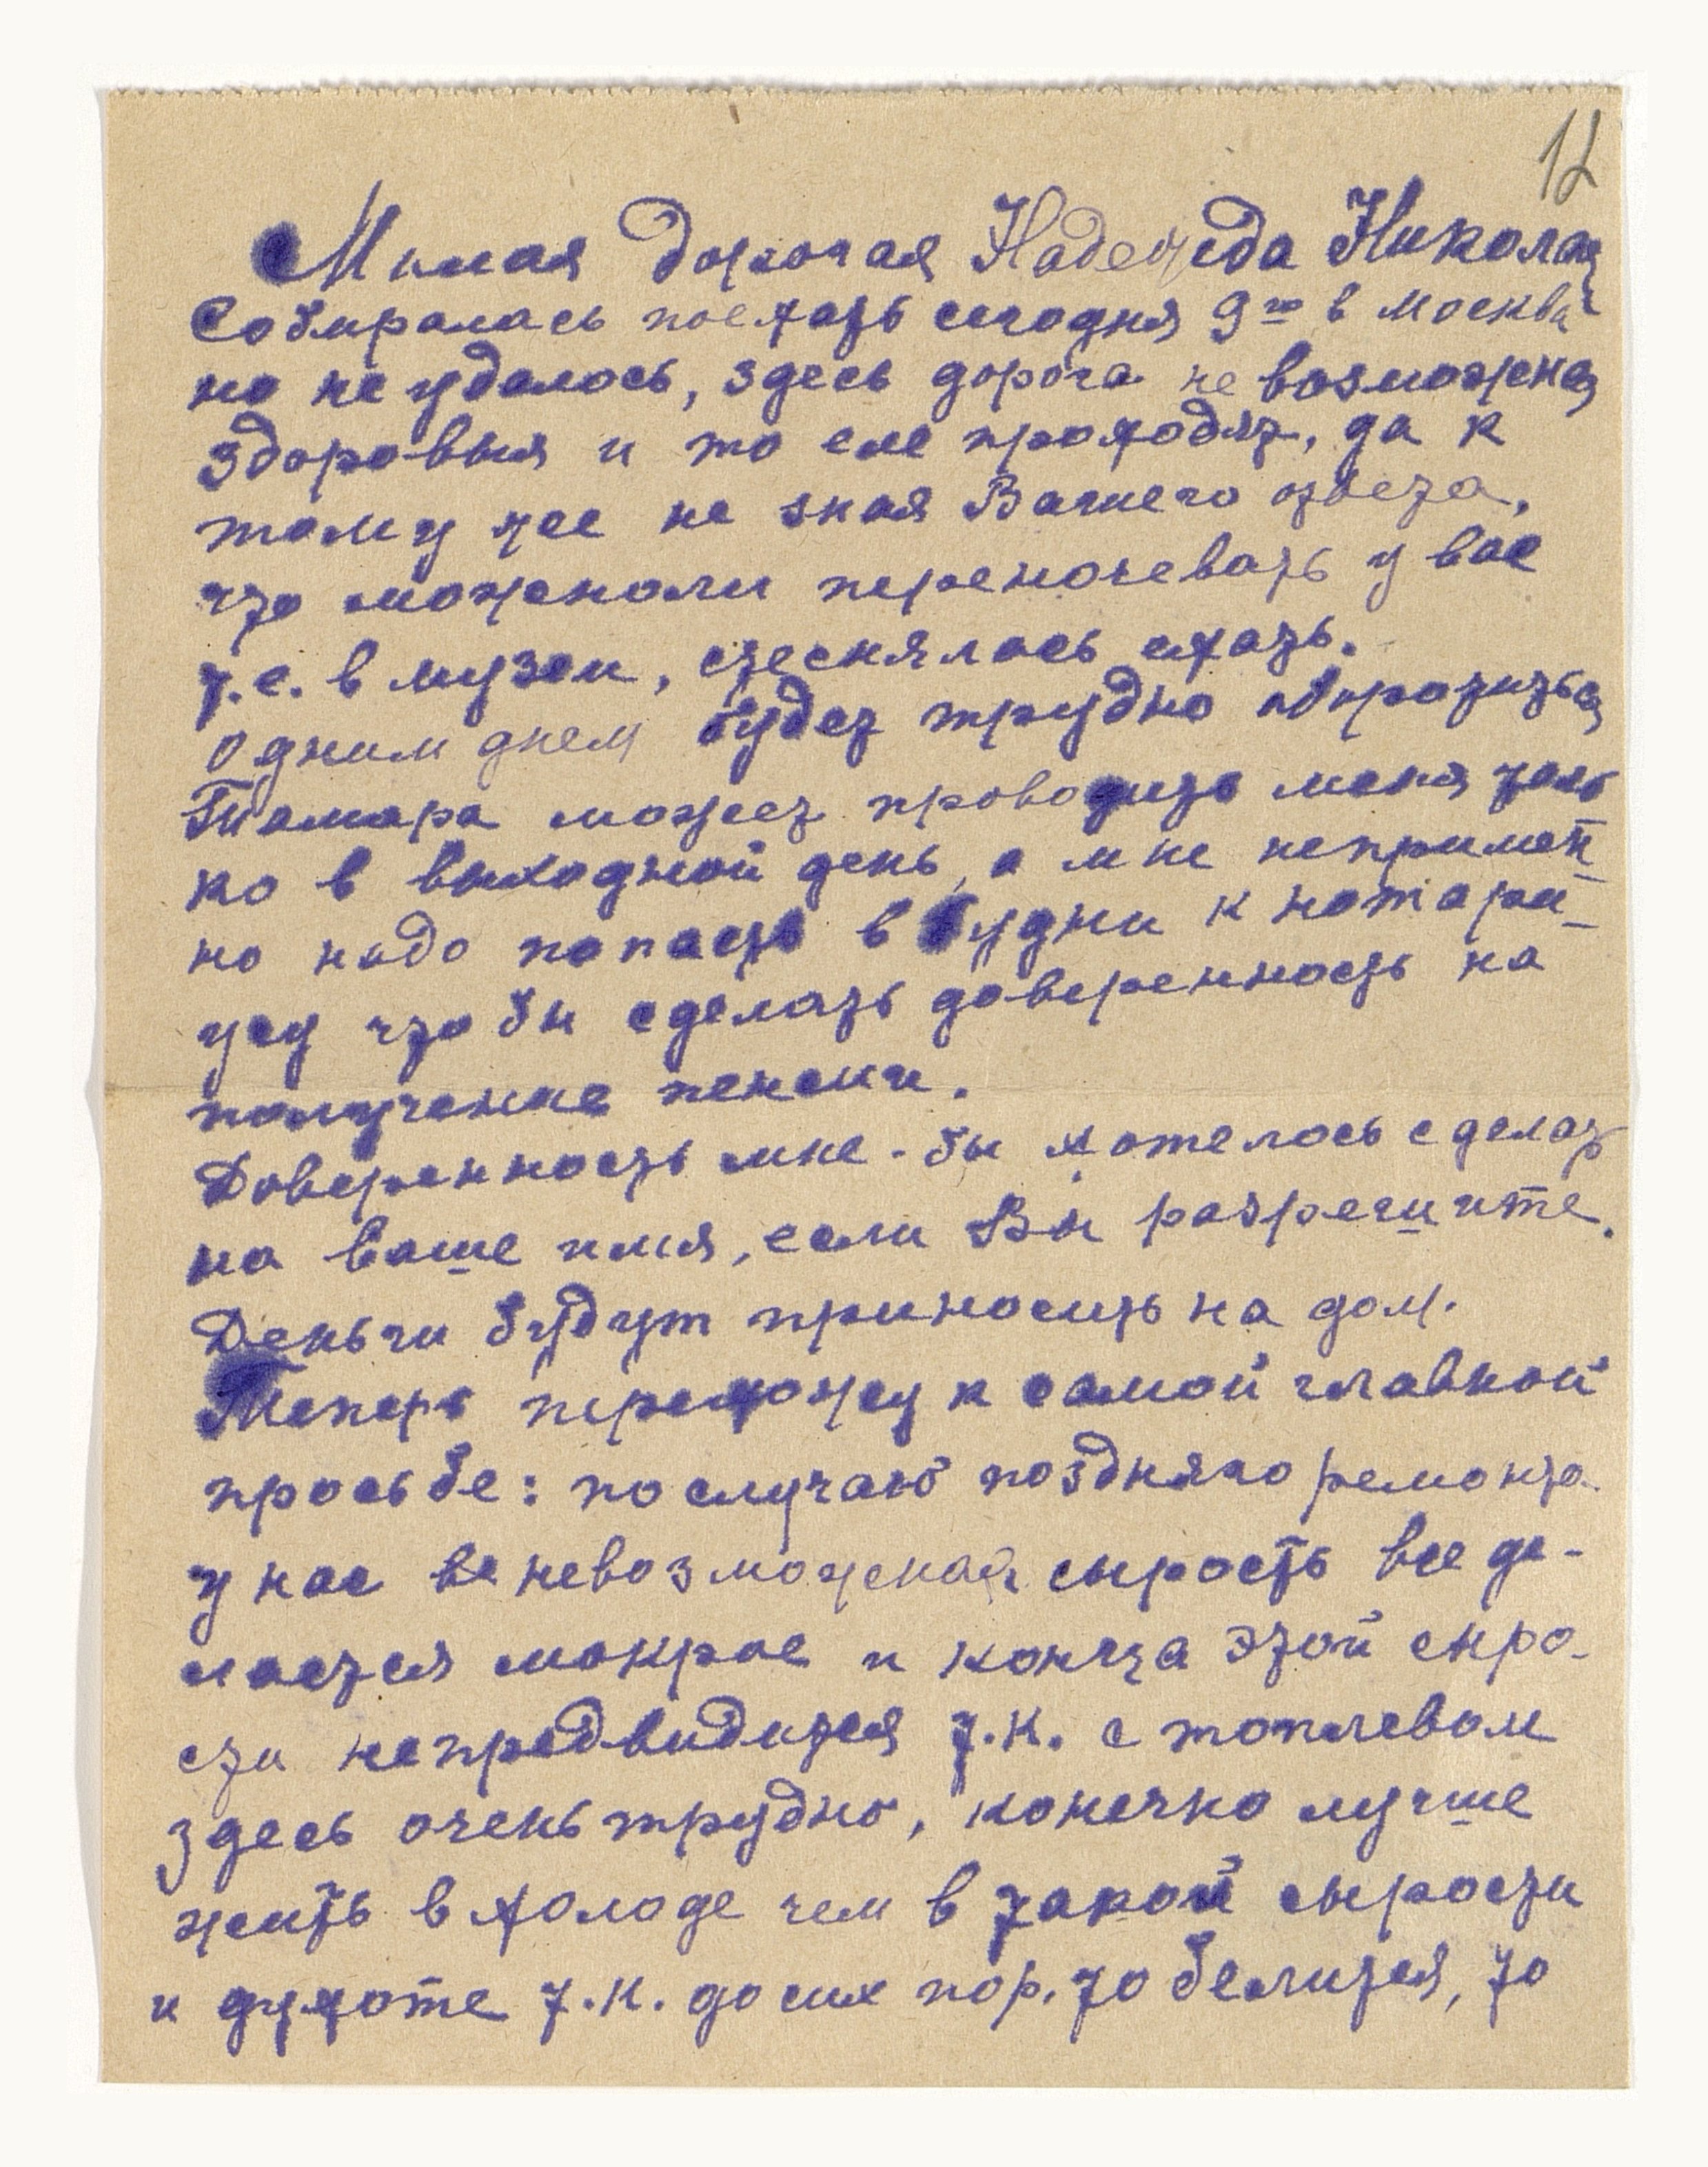 12
Милая дорогая Надежда Никола
Собиралась поехать сегодня 9го в Москву
но не удалось, здесь дорога не возможная
здоровыя и то еле проходят, да к
тому же не зная Вашего ответа,
что можноли переночевать у вас
т.е. в музеи, стеснялась ехать.
Одним днем будет трудно обратиться
Тамара может проводить меня толь
ко в выходной день, а мне непримен
но надо попасть в будни к нотари-
усу что бы сделать доверенность на
получение пенсии.
Доверенность мне-бы хотелось сделать
на ваше имя, если Вы разрешите.
Деньги будут приносить на дом.
Теперь перехожу к самой главной
просьбе: по случаю поздняго ремонта
у нас невозможная сырость все де-
лается мокрое и конца этой сыро-
сти непредвидится т.к. с топлевом
здесь очень трудно, конечно лучше
жить в холоде чем в такой сырости
и духоте т.к. до сих пор. то белится, то